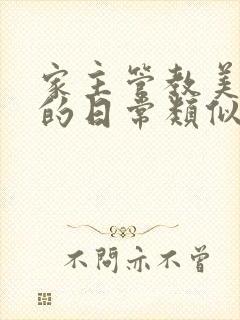 家主管教美
的日常類似
不問亦不曾